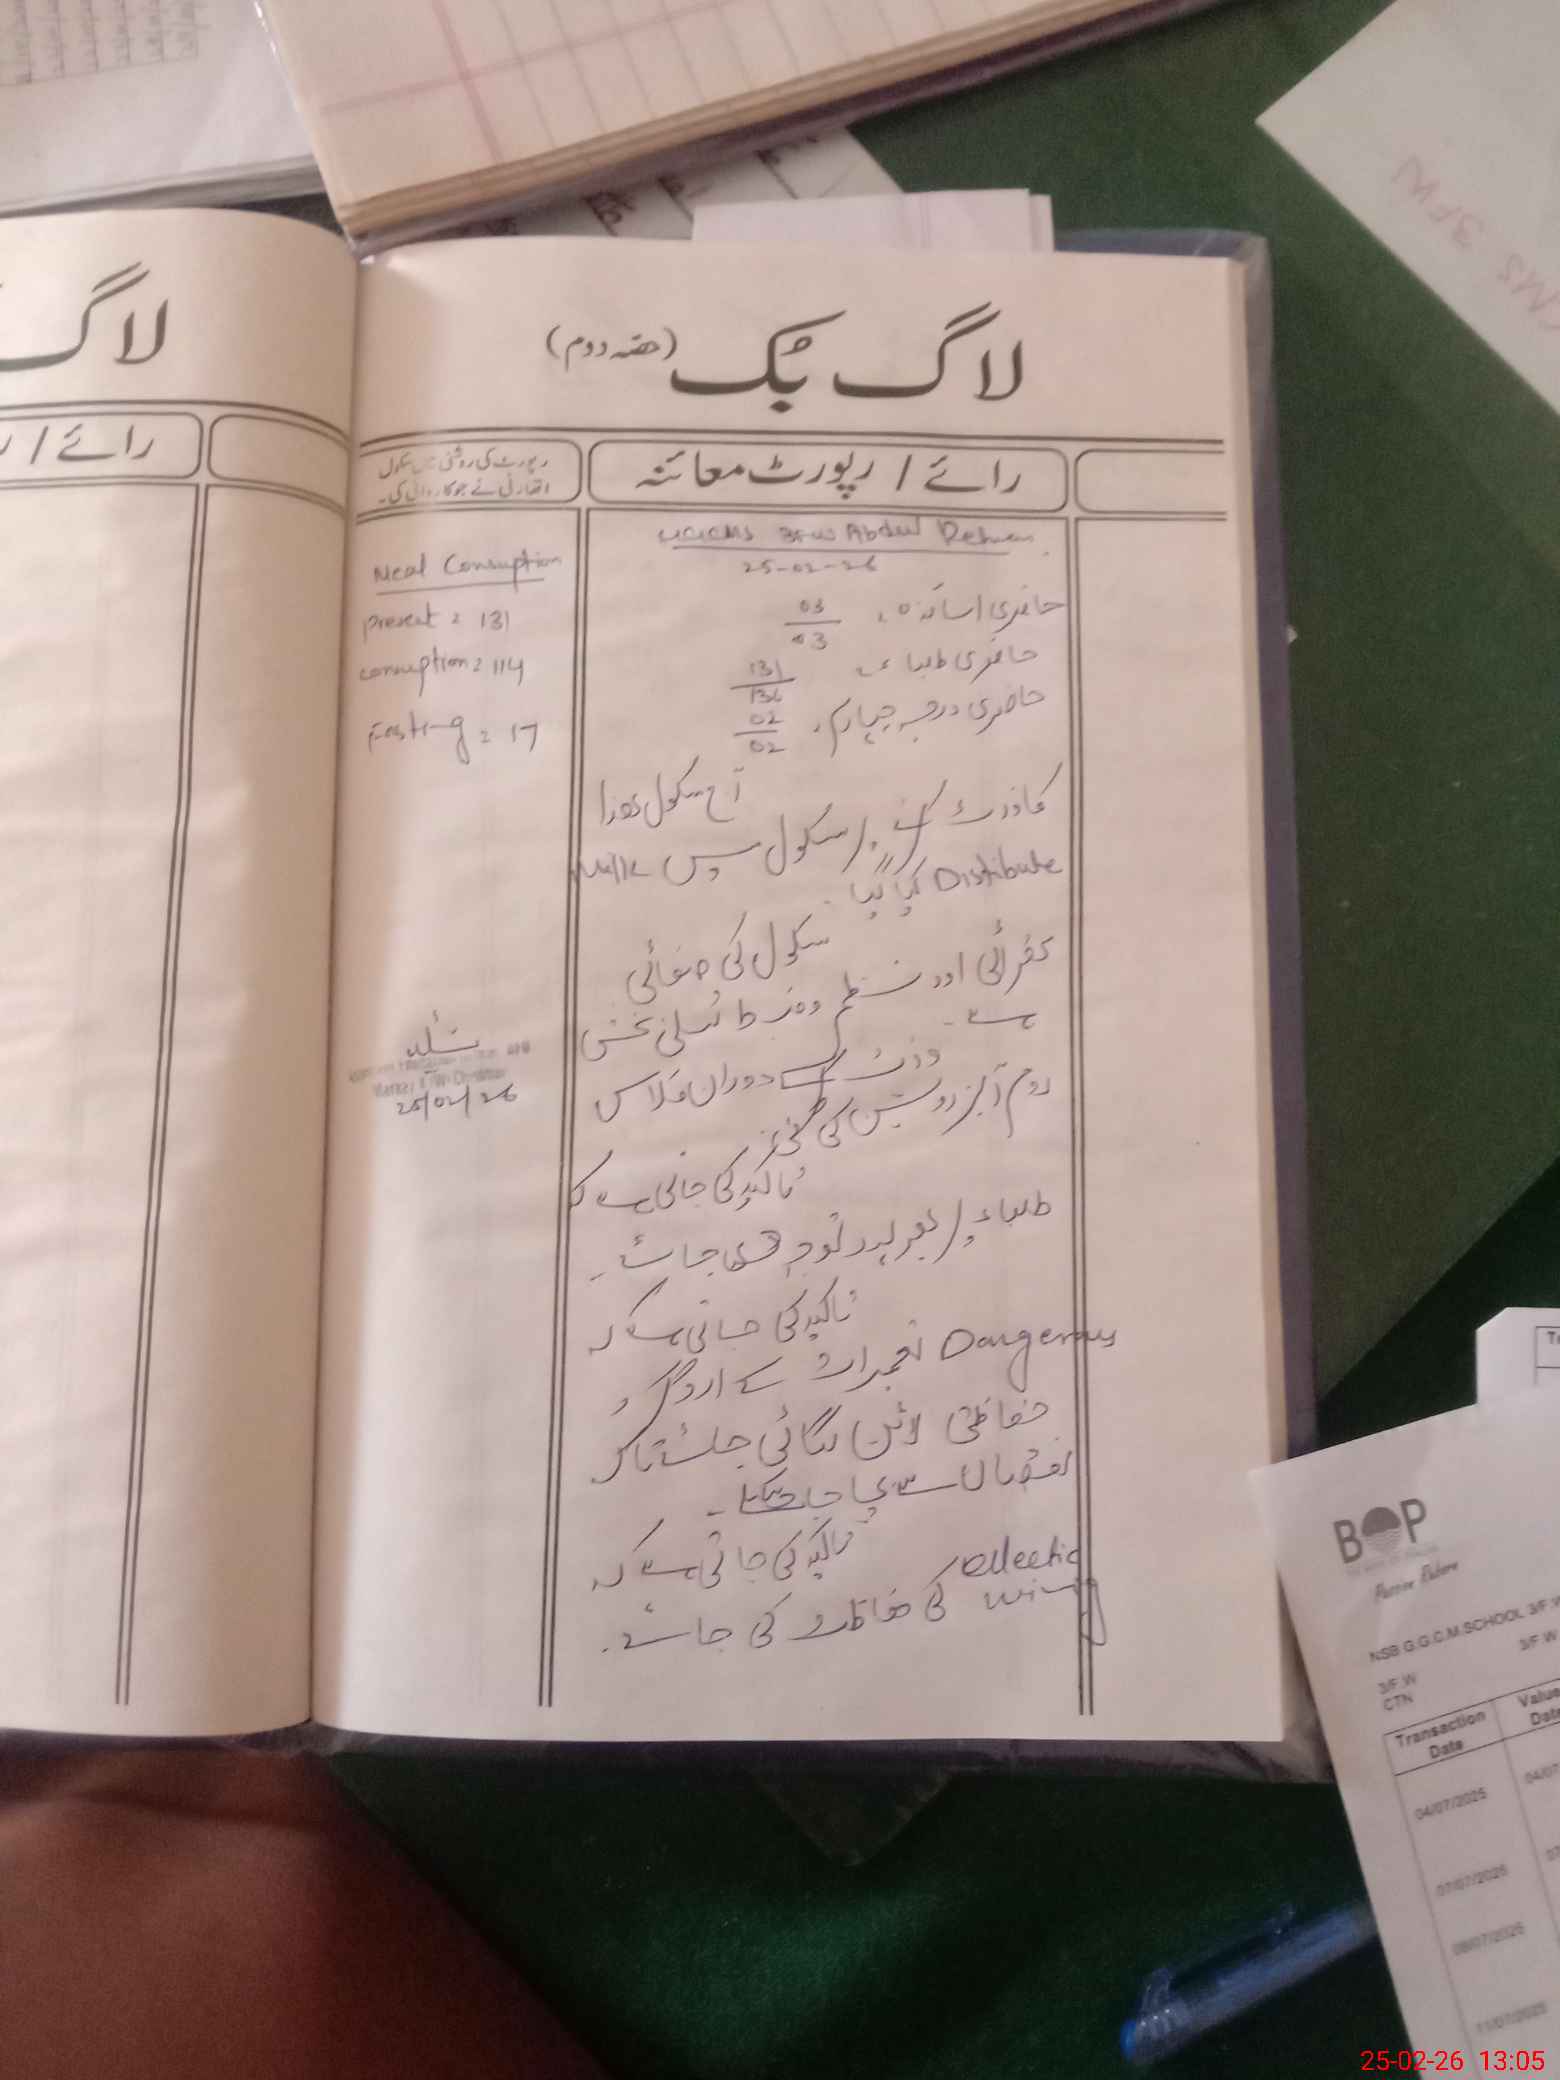 لاگ بک (حصہ دوم)
رائے / رپورٹ معائنہ
رپورٹ کی روشنی میں سکول
اتھارٹی نے جو کاروائی کی۔
3FW Abdul Rehman
25-02-26
حاضری اساتذہ 03/03
حاضری طلباء 131/136
حاضری درجہ چہارم 02/02
آج سکول ھذا
کا وزٹ کیا۔ سکول میں Milk
Distibute کیا گیا۔
سکول کی صفائی
ستھرائی اور نظم و ضبط تسلی بخش
ہے۔
وزٹ کے دوران کلاس
روم آبزرویشن کی گئی
تاکید کی جاتی ہے کہ
طلباء پر بھرپور توجہ دی جائے۔
تاکید کی جاتی ہے کہ
Dangerous تعمیرات کے اردگرد
حفاظتی لائن لگائی جائے تاکہ
نقصان سے بچا جا سکے۔
تاکید کی جاتی ہے کہ
ellectic wiring کی حفاظت کی جائے۔
Meal Consuption
present = 131
consuption = 114
Fasting = 17
25/02/26
لاگ
رائے /
3FW
BOP
NSB G.G.C.M.SCHOOL 3/F.W
3/F.W
3/F.W
CTN
Transaction Date
Value Date
04/07/2025
04/07
07/07/2025
08/07/2025
11/07/2025
25-02-26 13:05